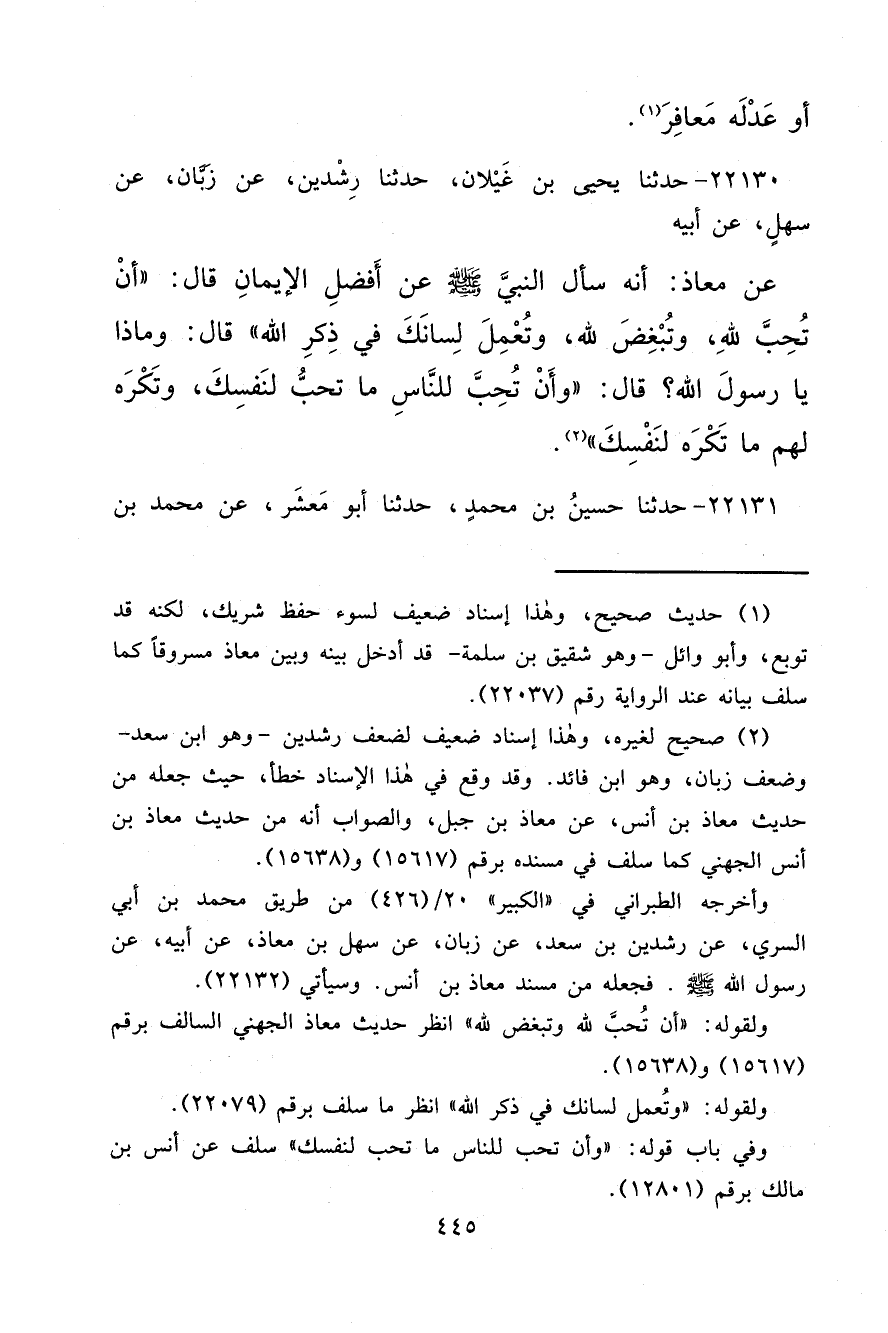 أو عَدْلَه مَعافِرَ(١).
٢٢١٣٠- حدثنا يحيى بن غَيْلان، حدثنا رِشْدين، عن زَبَّان، عن
سهلٍ، عن أبيه
عن معاذ: أنه سأل النبيَّ ﷺ عن أَفضلِ الإيمانِ قال: «أنْ
تُحِبَّ للهِ، وتُبْغِضَ لله، وتُعْمِلَ لِسانَكَ في ذِكرِ الله» قال: وماذا
يا رسولَ الله؟ قال: «وأَنْ تُحِبَّ للنَّاسِ ما تحبُّ لنَفسِكَ، وتَكْرَه
لهم ما تَكْرَه لنَفْسِكَ»(٢).
٢٢١٣١- حدثنا حسينُ بن محمدٍ، حدثنا أبو مَعشَر، عن محمد بن
(١) حديث صحيح، وهٰذا إسناد ضعيف لسوء حفظ شريك، لكنه قد
توبع، وأبو وائل -وهو شقيق بن سلمة- قد أدخل بينه وبين معاذ مسروقاً كما
سلف بيانه عند الرواية رقم (٢٢٠٣٧).
(٢) صحيح لغيره، وهٰذا إسناد ضعيف لضعف رشدين -وهو ابن سعد-
وضعف زبان، وهو ابن فائد. وقد وقع في هٰذا الإسناد خطأ، حيث جعله من
حديث معاذ بن أنس، عن معاذ بن جبل، والصواب أنه من حديث معاذ بن
أنس الجهني كما سلف في مسنده برقم (١٥٦١٧) و(١٥٦٣٨).
وأخرجه الطبراني في «الكبير» ٢٠/(٤٢٦) من طريق محمد بن أبي
السري، عن رشدين بن سعد، عن زبان، عن سهل بن معاذ، عن أبيه، عن
رسول الله ﷺ . فجعله من مسند معاذ بن أنس. وسيأتي (٢٢١٣٢).
ولقوله: «أن تُحبَّ لله وتبغض لله» انظر حديث معاذ الجهني السالف برقم
(١٥٦١٧) و(١٥٦٣٨).
ولقوله: «وتُعمل لسانك في ذكر الله» انظر ما سلف برقم (٢٢٠٧٩).
وفي باب قوله: «وأن تحب للناس ما تحب لنفسك» سلف عن أنس بن
مالك برقم (١٢٨٠١).
٤٤٥